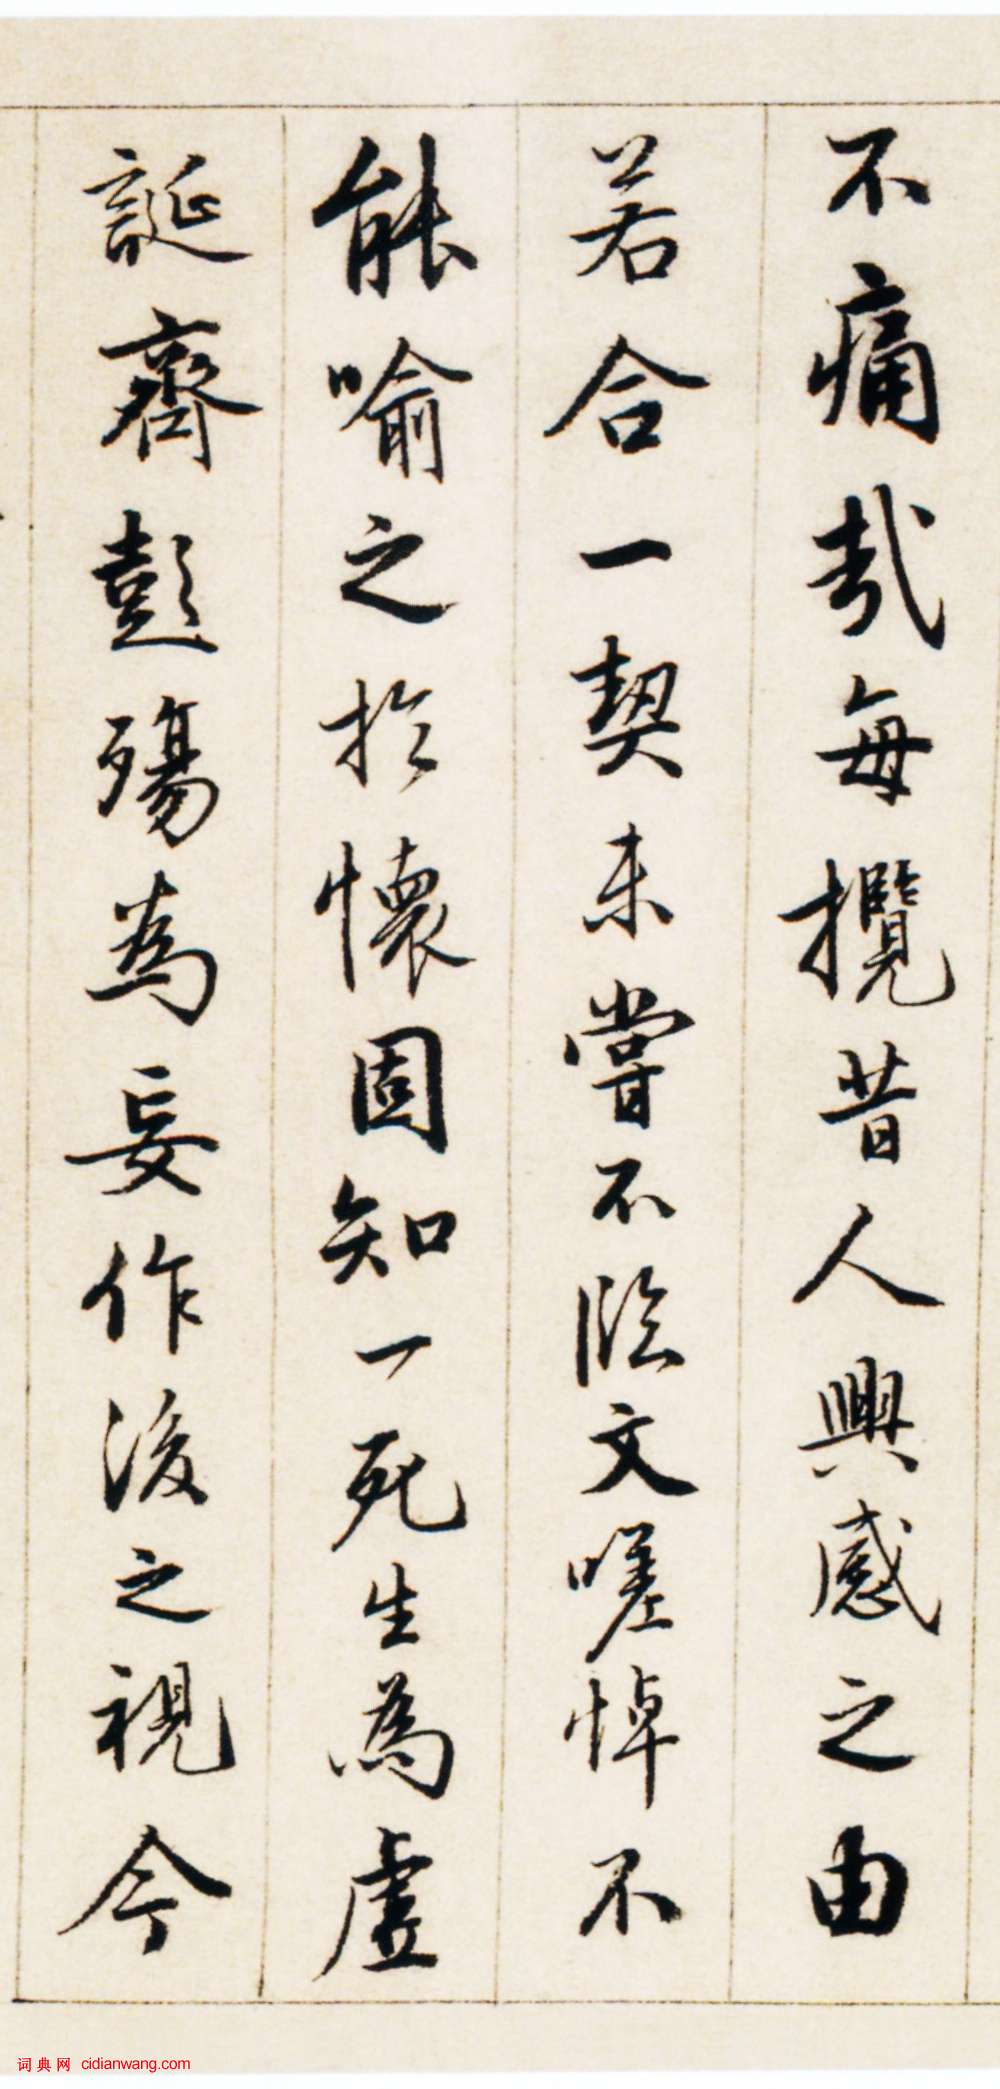 不痛哉每攬昔人興感之由
若合一契未嘗不臨文嗟悼不
能喻之於懷固知一死生為虛
誕齊彭殤為妄作後之視今
词典网 cidianwang.com